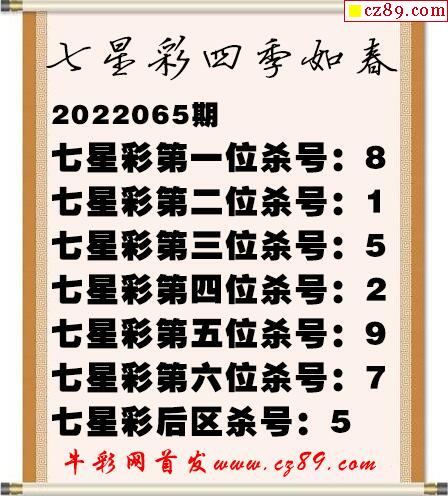 cz89.com
七星彩四季如春
2022065期
七星彩第一位杀号：8
七星彩第二位杀号：1
七星彩第三位杀号：5
七星彩第四位杀号：2
七星彩第五位杀号：9
七星彩第六位杀号：7
七星彩后区杀号：5
牛彩网首发www.cz89.com